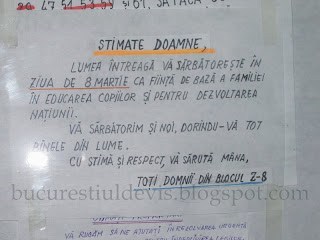 STIMATE DOAMNE,
LUMEA ÎNTREAGĂ VĂ SĂRBĂTOREȘTE ÎN
ZIUA DE 8 MARTIE CA FIINȚĂ DE BAZĂ A FAMILIEI
ÎN EDUCAREA COPIILOR ȘI PENTRU DEZVOLTAREA
NAȚIUNII.
VĂ SĂRBĂTORIM ȘI NOI, DORINDU-VĂ TOT
BINELE DIN LUME.
CU STIMĂ ȘI RESPECT, VĂ SĂRUTĂ MÂNA,
TOȚI DOMNII DIN BLOCUL Z-8
bucurestiuldevis.blogspot.com
VĂ RUGĂM SĂ NE AJUTAȚI